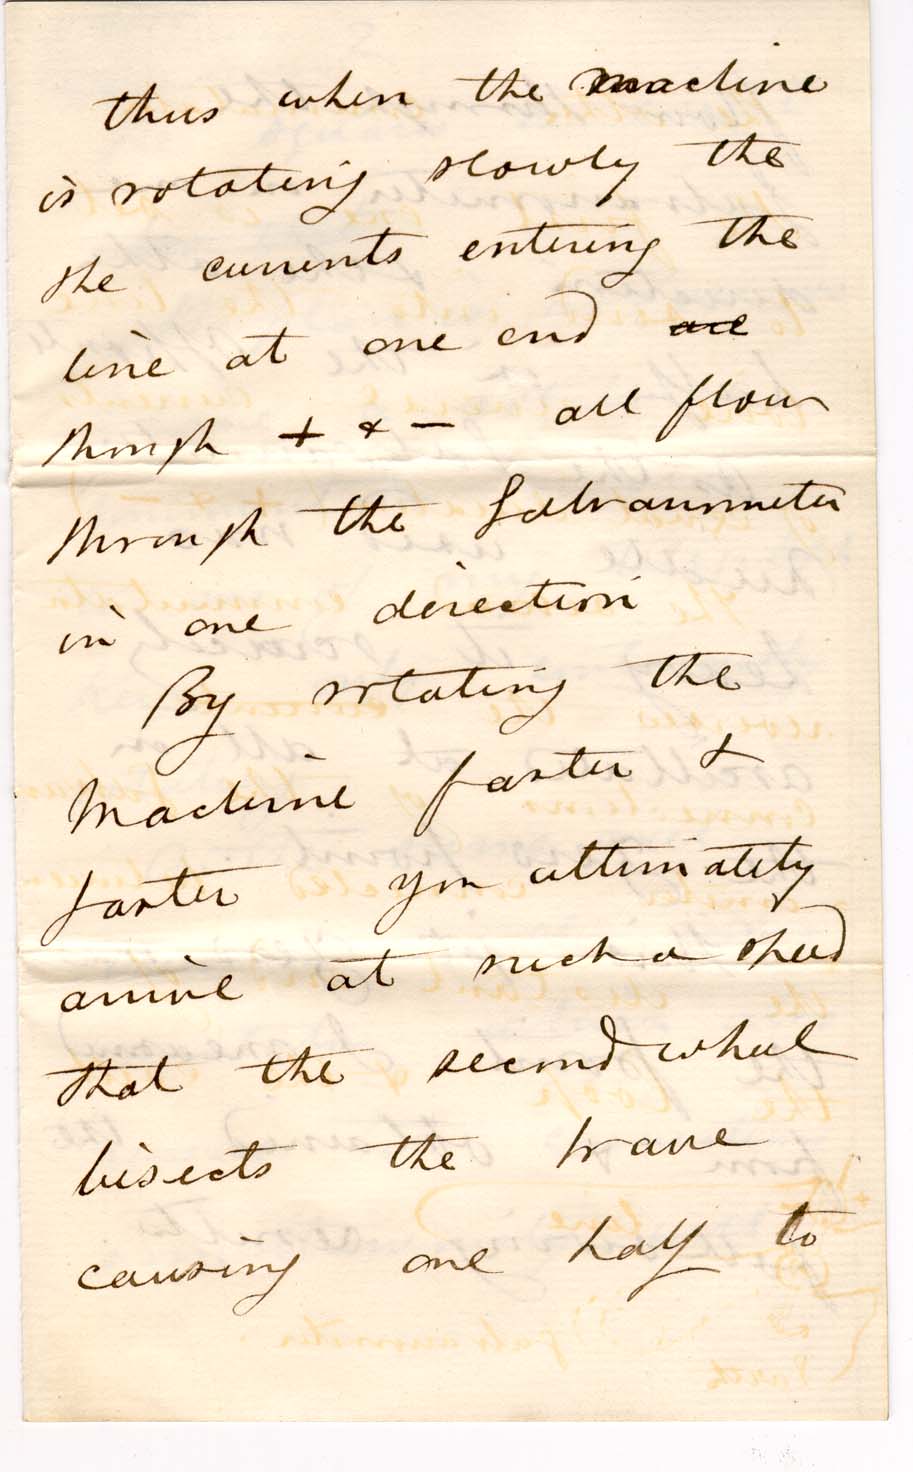 thus when the machine
is rotating slowly the
the currents entering the
line at one end are
though + & - all flow
through the Galvanometer
in one direction
By rotating the
Machine faster &
faster you ultimately
arrive at such a speed
that the second wheel
bisects the wave
causing one half to